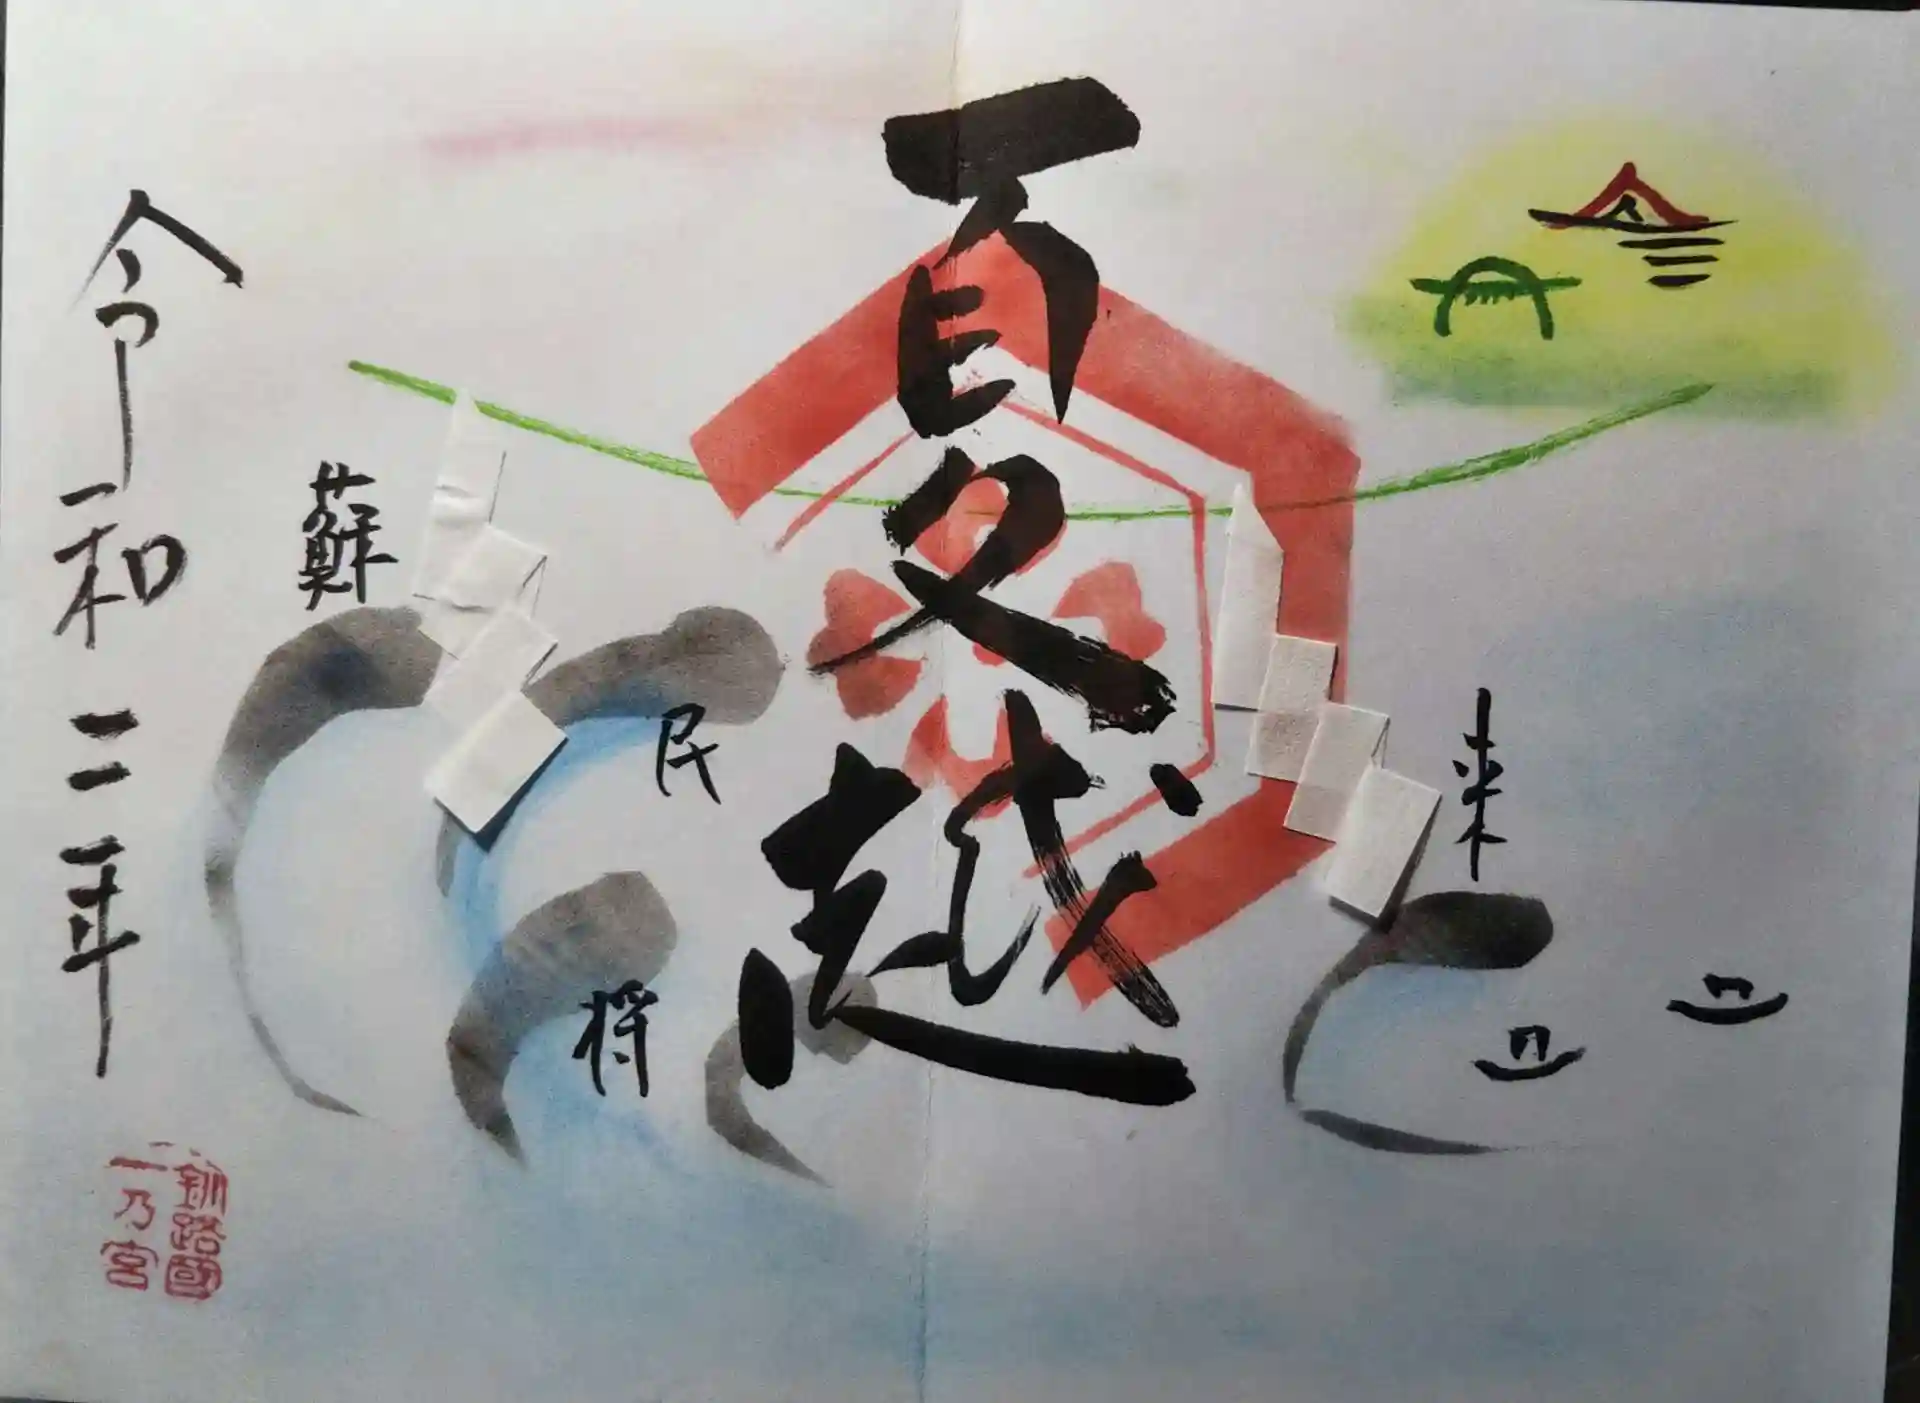 夏越
蘇民将来
令和二年
釧路國
一乃宮